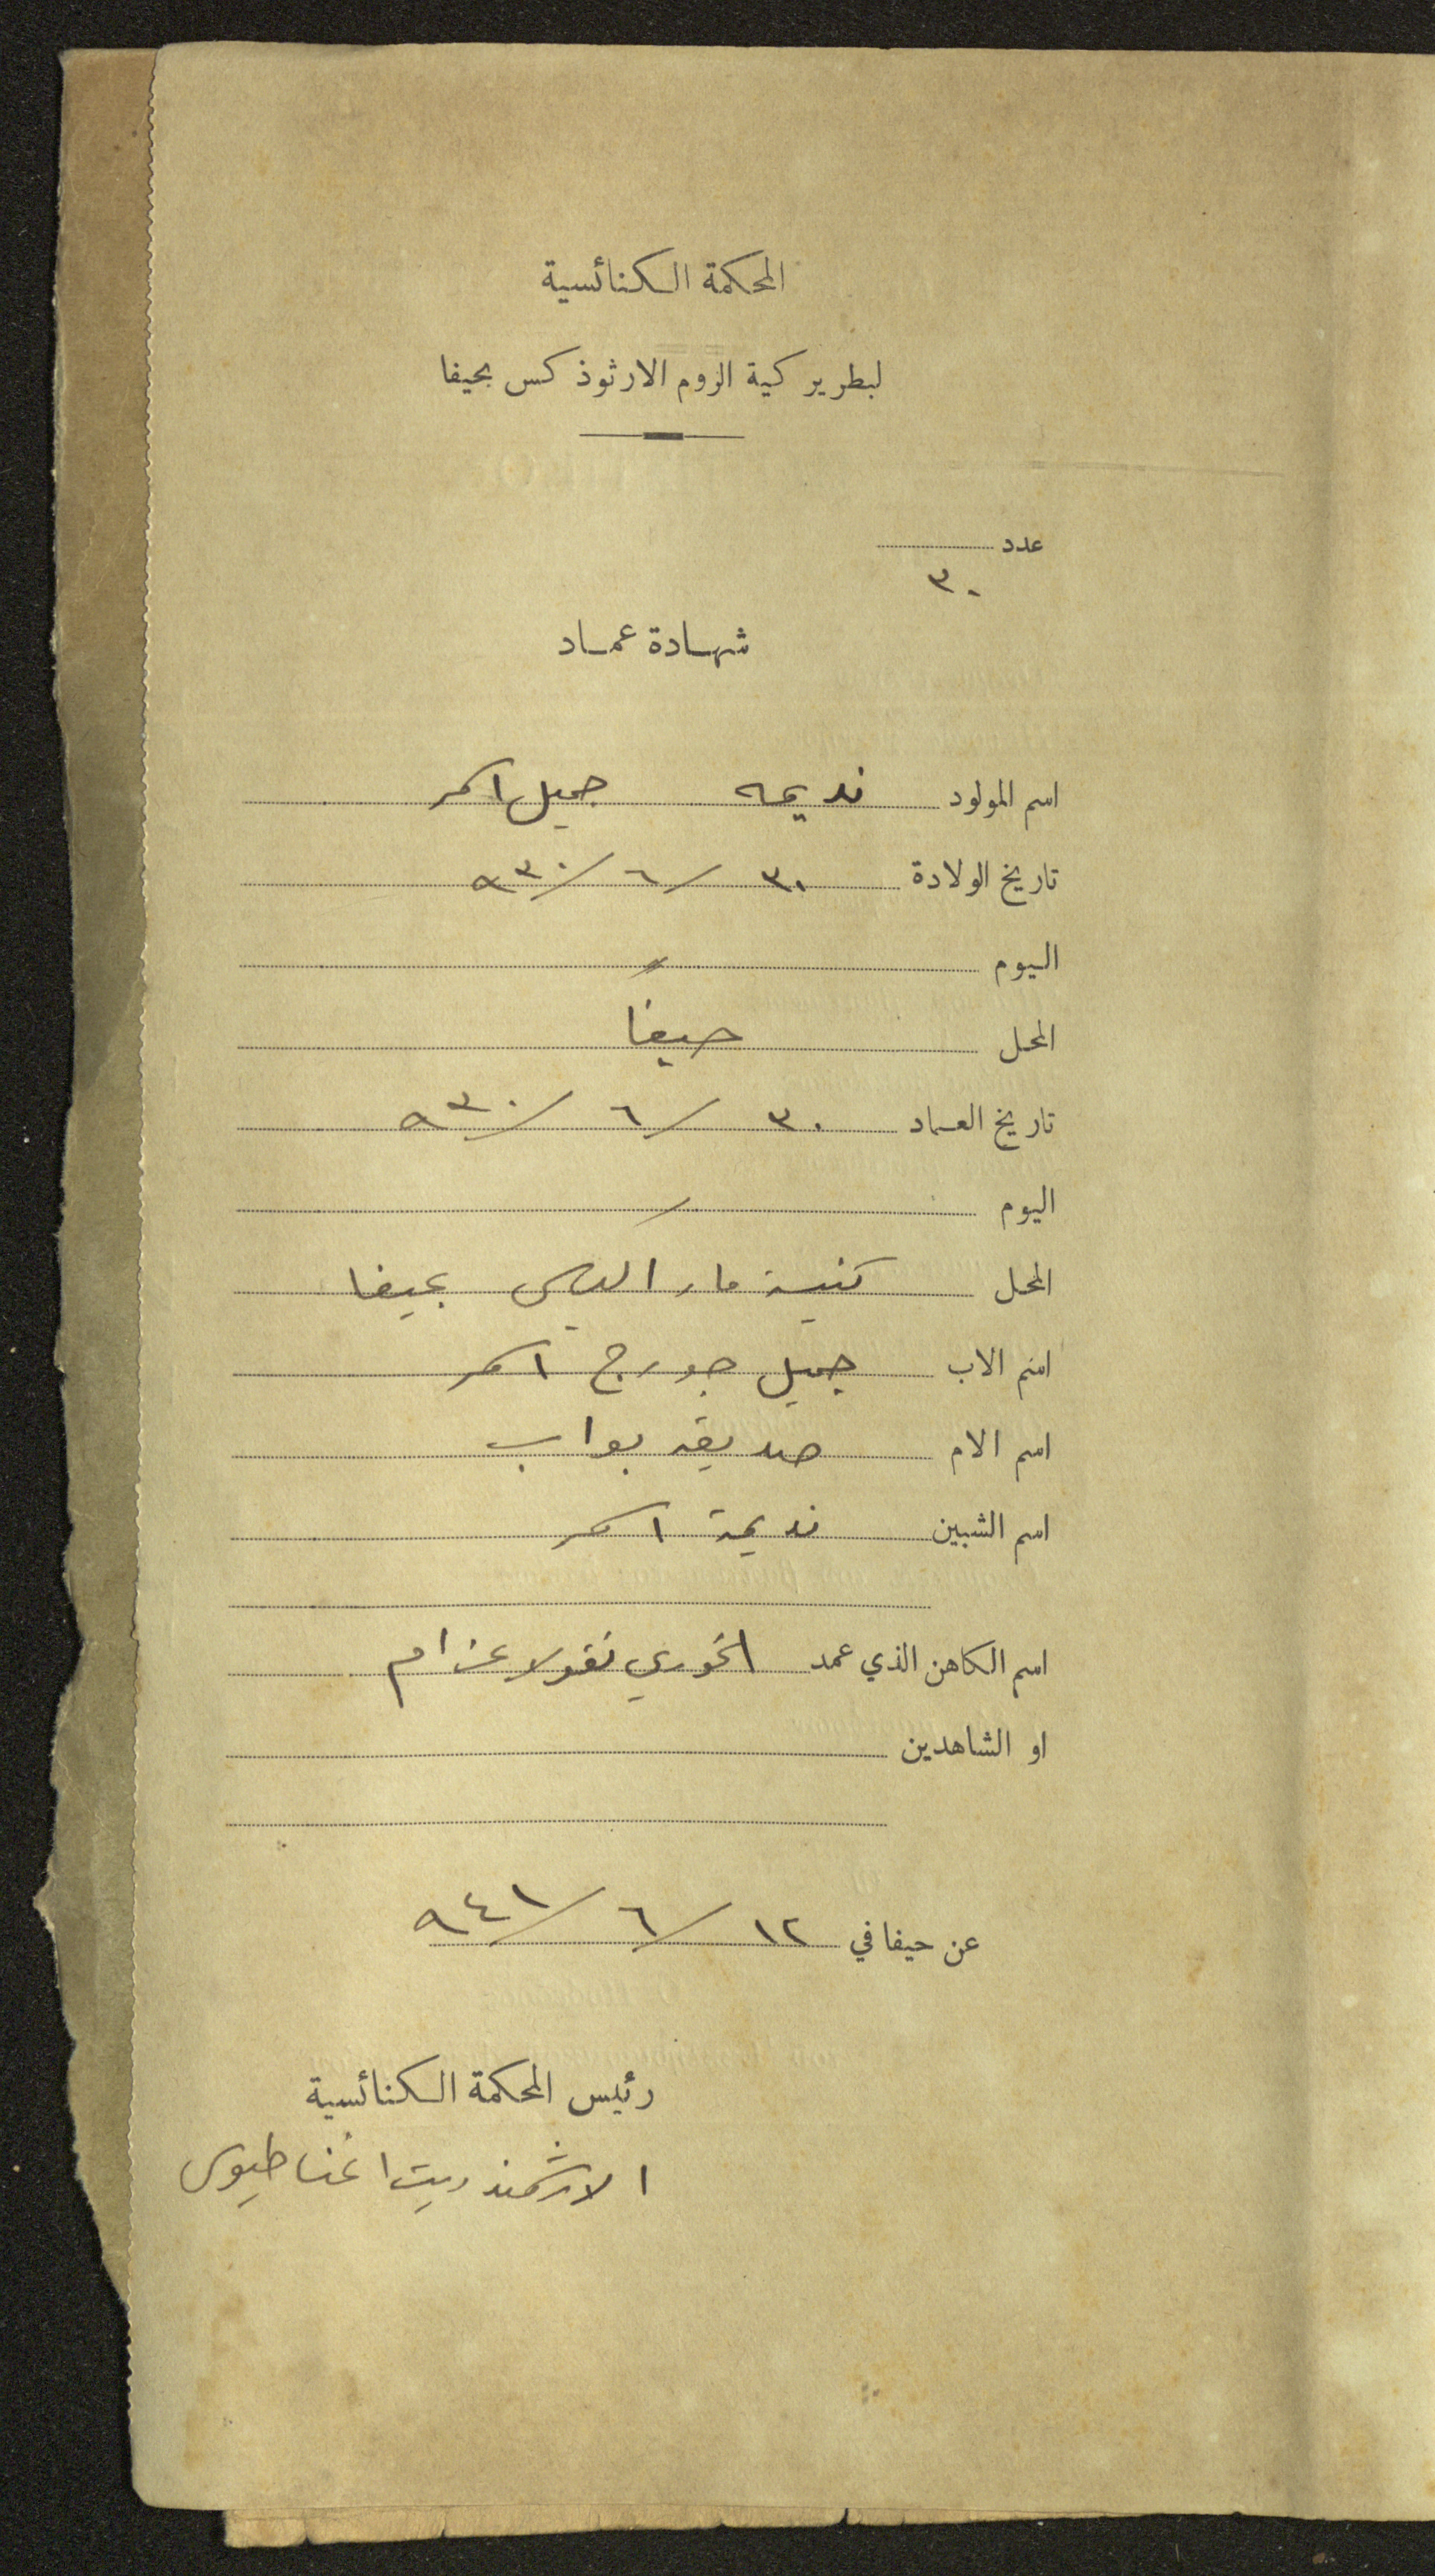 المحكمة الكنائسية
لبطريركية الروم الارثوذكس بحيفا
عدد
٣٠
شهادة عماد
اسم المولود نديمه جميل اسمر
تاريخ الولادة ٣٠/٦/٩٣٠
اليوم
المحل حيفا
تاريخ العماد ٣٠/٦/٩٣٠
اليوم
المحل كنيسة مار الياس بحيفا
اسم الاب جميل جورج اسمر
اسم الام صديقه بواب
اسم الشبين نديمة اسمر
اسم الكاهن الذي عمد الخوري نقولا عزام
او الشاهدين
عن حيفا في ١٢/٦/٩٤١
رئيس المحكمة الكنائسية
الارشمندريت اغناطيوس